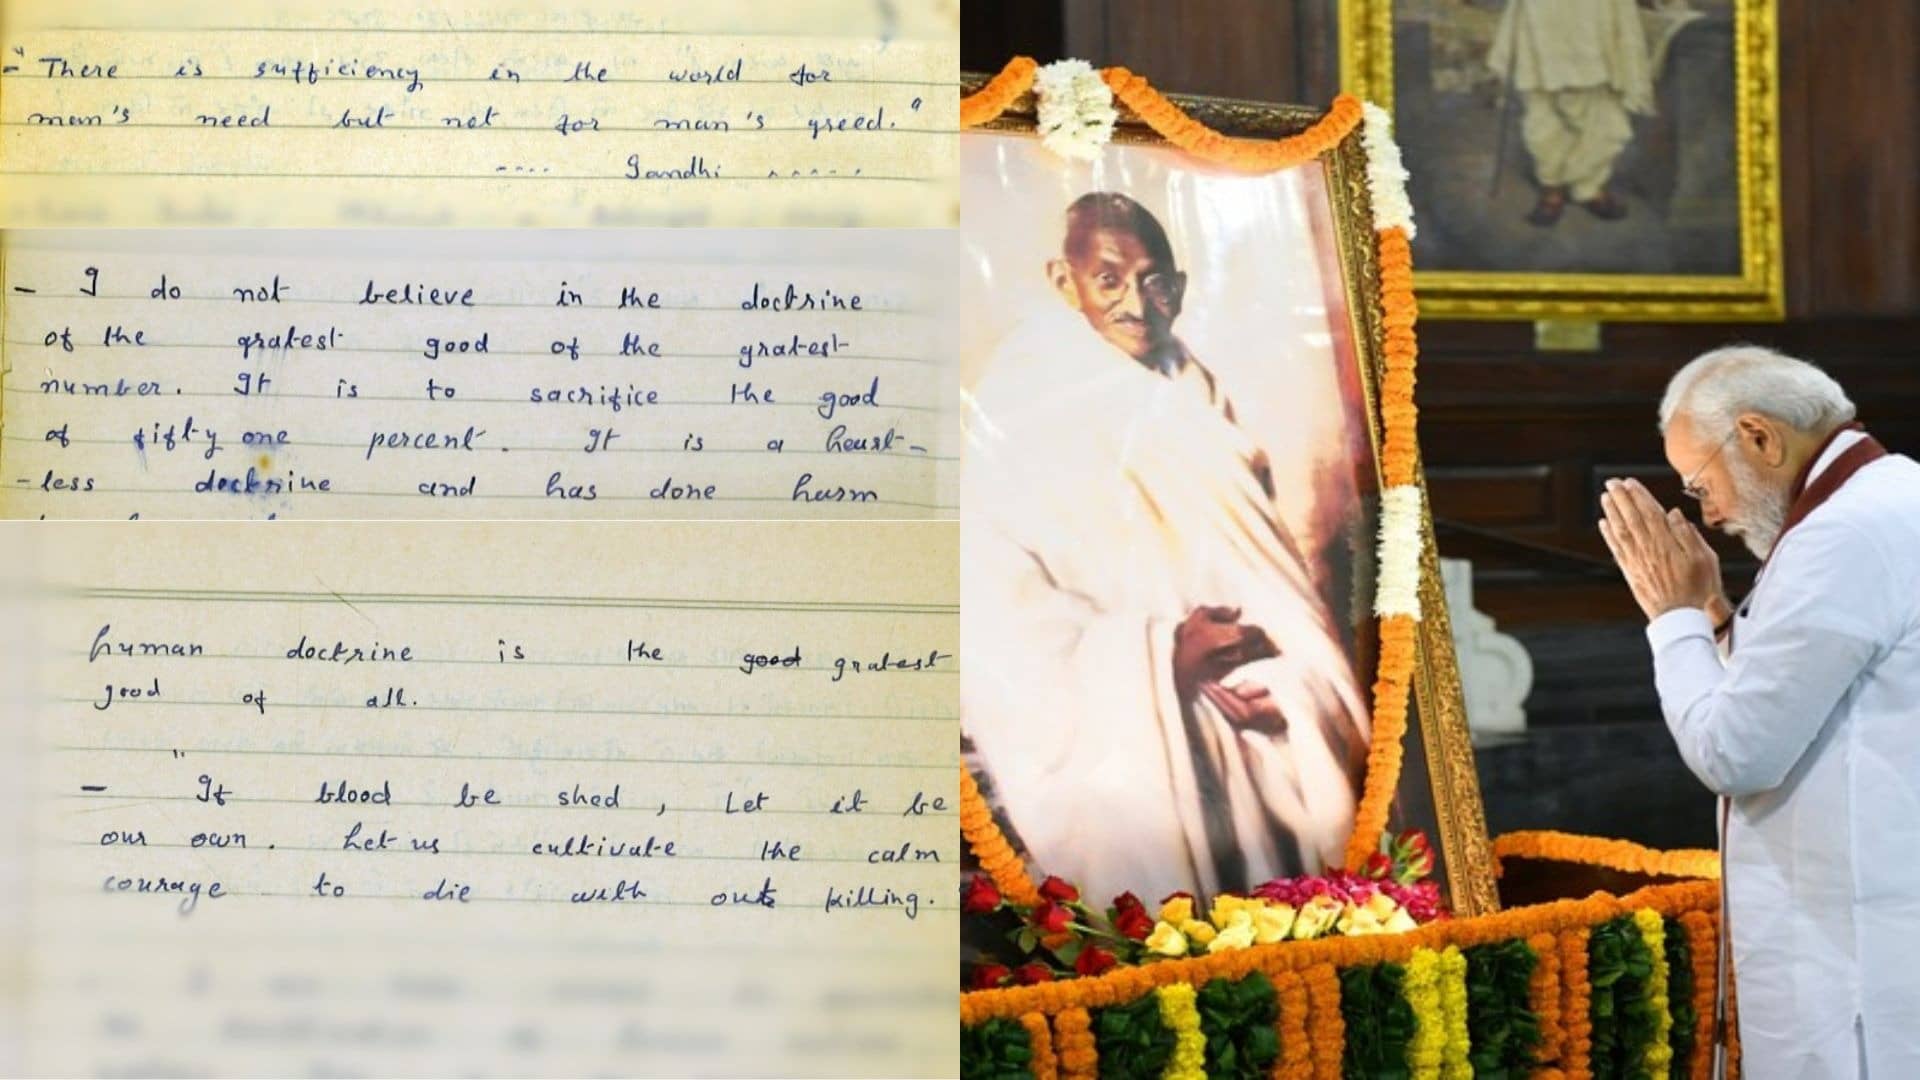 - "There is sufficiency in the world for
man's need but not for man's greed."
---- Gandhi -----
- I do not believe in the doctrine
of the gratest good of the gratest
number. It is to sacrifice the good
of fifty one percent. It is a heart-
-less doctrine and has done harm
human doctrine is the good gratest
good of all.
- "If blood be shed, Let it be
our own. Let us cultivate the calm
courage to die with out killing.